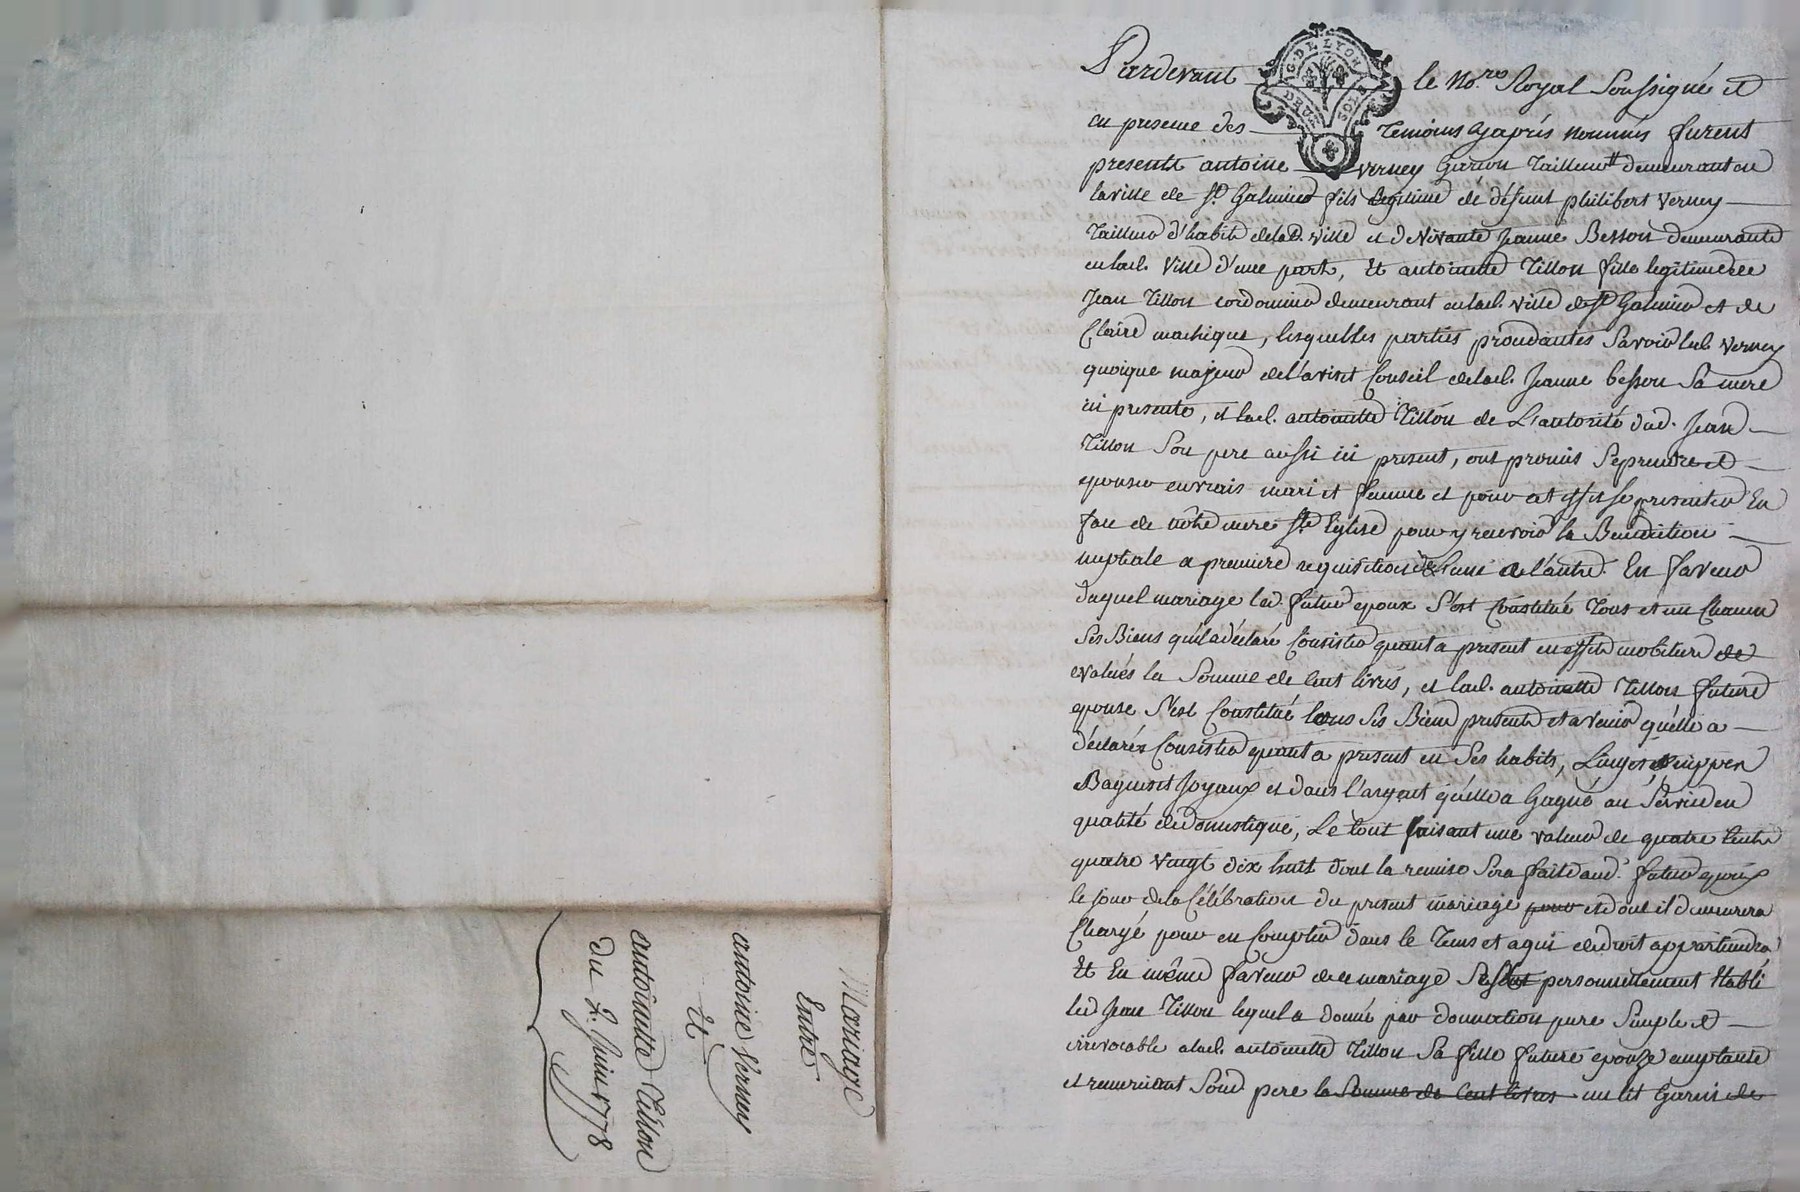 Mariage
Entre
antoine Verney
Et
antoinette Tillon
du 2. Juin 1778
G. DE LYON
DEUX SOLS
Pardevant le No.re Royal Soussigné et
en presence des temoins cyaprés nommés furent
presents antoine verney Garçon Tailleur demeurant en
la ville de St. Galmier fils legitime de défunt philibert Verney
Tailleur d'habits de lad. ville et de vivante Jeanne Besson demeurante
en lad. ville d'une part, Et antoinette Tillon fille legitime de
Jean Tillon cordonnier demeurant en lad. ville de St. Galmier et de
Claire machique, lesquelles parties procedantes Savoir led. Verney
quoique majeur de l'avis et Conseil de lad. Jeanne besson Sa mere
ici presente, et lad. antoinette Tillon de L'autorité dud. Jean
Tillon Son pere aussi ici present, ont promis Se prendre et
epouser en vrais mari et femme et pour cet effet Se presenter En
face de nôtre mere Ste. Eglise pour y recevoir la Benediction
nuptiale a premiere requisition de l'une a l'autre. En faveur
duquel mariage led. futur epoux S'est Constitué Tous et un Chacun
Ses Biens qu'il a déclaré Consister quant a present en effets mobiliers de
evalués la Somme de Cent livres, et lad. antoinette Tillon future
epouse S'est Constitué tous Ses Biens presents et a venir qu'elle a
déclarés Consister quant a present en Ses habits, Linges, nippes
Bagues et Joyaux et dans l'argent qu'elle a Gagné au Service en
qualité de domestique, Le tout faisant une valeur de quatre Cents
quatre vingt dix huit dont la remise Sera faite aud. futur epoux
le jour de la Célébration du present mariage pour et dont il demeurera
Chargé pour en Compter dans le Tems et a qui de droit appartiendra
Et En même faveur de ce mariage S'est personnellement Etabli
led. Jean Tillon lequel a donné par donnation pure Simple et
irrevocable a lad. antoinette Tillon Sa fille future epouze acceptante
et remerciant Sond. pere la Somme de Cent livres un lit Garni de